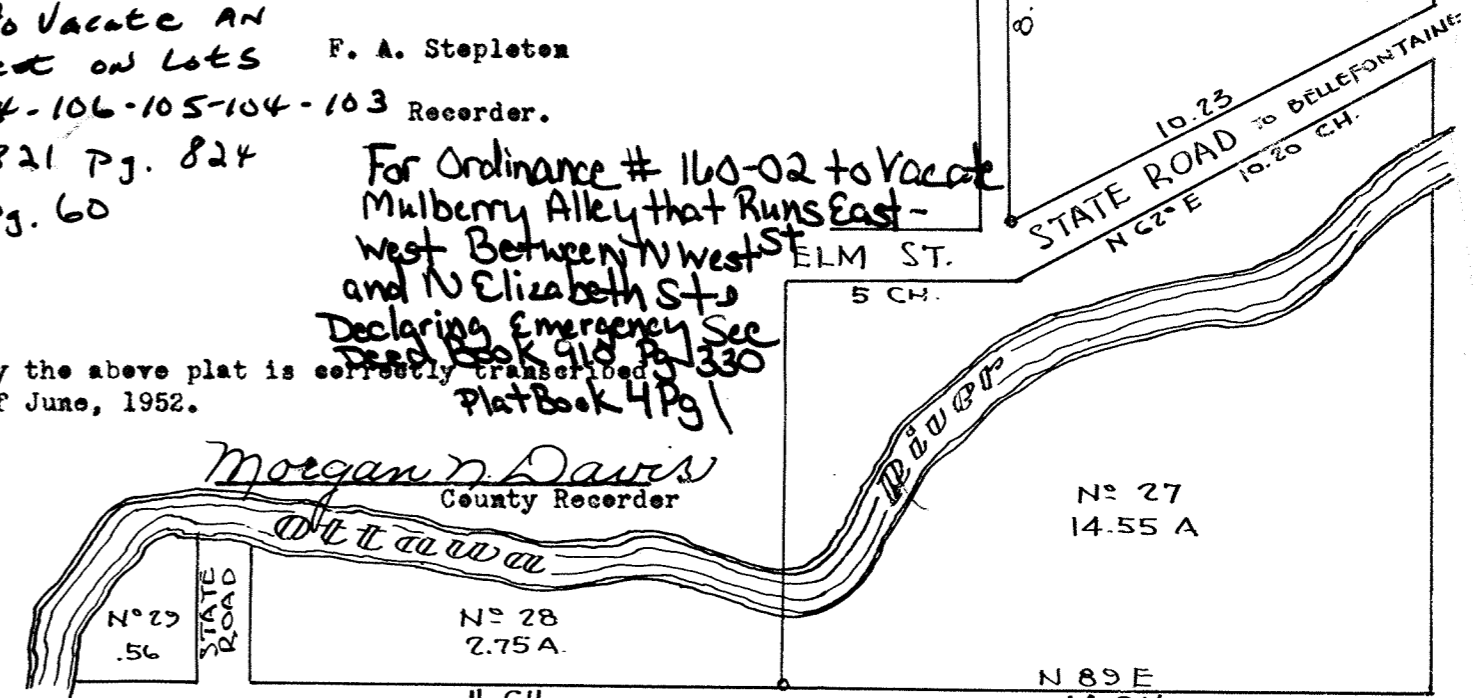 o Vacate AN
on Lots
4-106-105-104-103
821 Pg. 824
g. 60
F. A. Stepleton
Recorder.
For Ordinance # 160-02 to Vacate
Mulberry Alley that Runs East-
West Between N West St
and N Elizabeth St,
Declaring Emergency See
Deed Book 910 Pg 330
Plat Book 4 Pg 1
y the above plat is correctly transcribed
f June, 1952.
Morgan N. Davis
County Recorder
8.
10.23
STATE ROAD TO BELLEFONTAINE
N 62° E 10.20 CH.
ELM ST.
5 CH.
Ottawa River
Nº 27
14.55 A
Nº 29
.56
STATE ROAD
Nº 28
2.75 A.
N 89 E